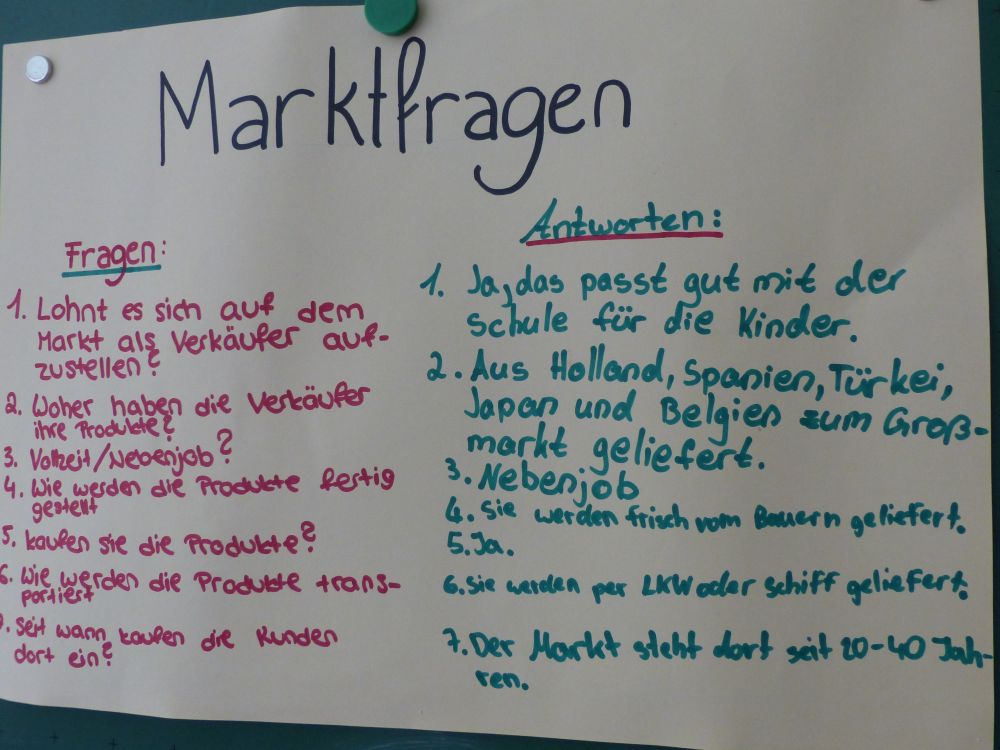 Marktfragen
Fragen:
1. Lohnt es sich auf dem
Markt als Verkäufer auf-
zustellen?
2. Woher haben die Verkäufer
ihre Produkte?
3. Vollzeit/Nebenjob?
4. Wie werden die Produkte fertig
gestellt
5. kaufen sie die Produkte?
6. Wie werden die Produkte trans-
portiert
7. Seit wann kaufen die Kunden
dort ein?
Antworten:
1. Ja, das passt gut mit der
schule für die Kinder.
2. Aus Holland, Spanien, Türkei,
Japan und Belgien zum Groß-
markt geliefert.
3. Nebenjob
4. Sie werden frisch vom Bauern geliefert.
5. Ja.
6. Sie werden per LKW oder schiff geliefert.
7. Der Markt steht dort seit 20-40 Jah-
ren.